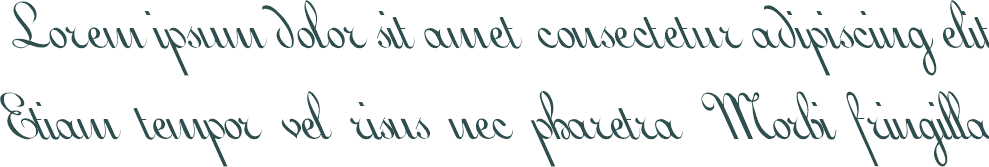 Lorem ipsum dolor sit amet consectetur adipiscing elit
Etiam tempor vel risus nec pharetra Morbi fringilla